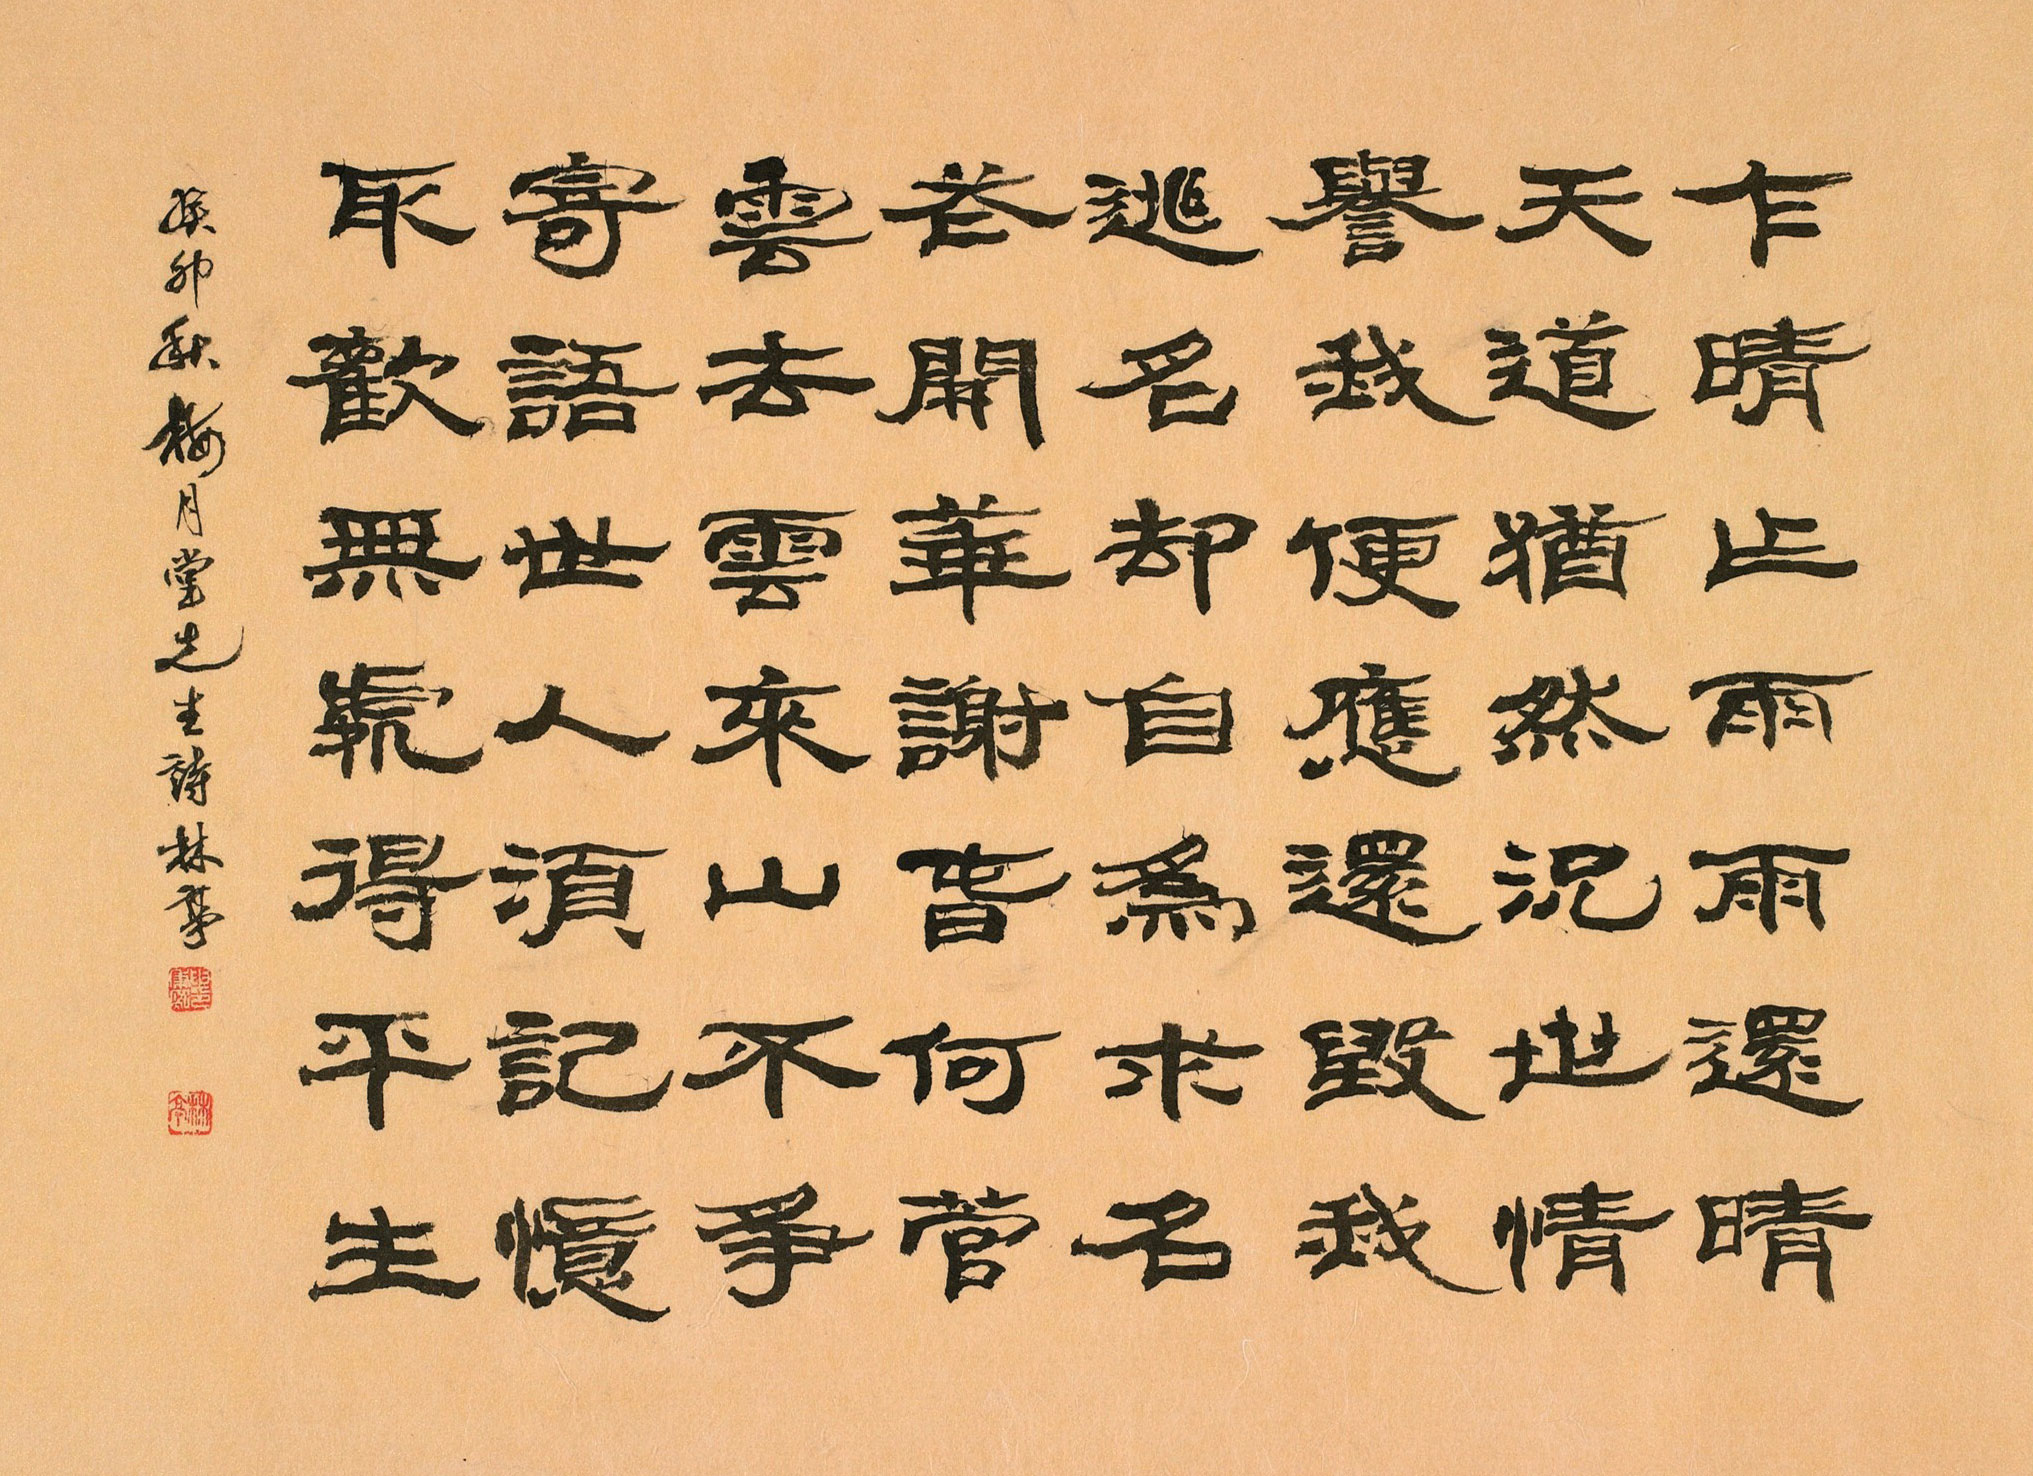 乍晴乍雨雨還晴
天道猶然況世情
譽我便應還毀我
逃名却自為求名
花開華謝旾何管
雲去雲來山不爭
寄語世人須記憶
取歡無處得平生
癸卯秋梅月堂先生詩林亭
林亭